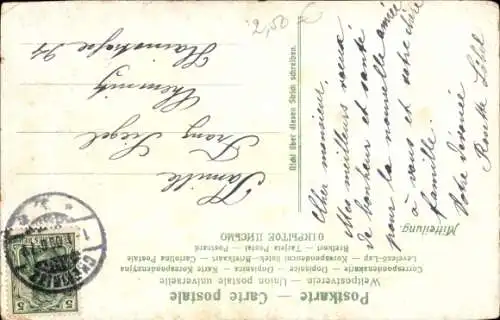 Postkarte — Carte postale
Weltpostverein — Union postale universelle
Correspondenzkarte — Dopisnice — Karta korespondencyjna
Levelező-Lap — Brefkort — Briefkaart — Cartolina Postale
Tarjeta Postal — Postcard
ОТКРЫТОЕ ПИСЬМО
Mitteilung
Cher monsieur.
Mes meilleurs vœux
de bonheur et santé
pour la nouvelle année
à vous et votre chère
famille.
Votre dévouée
Nicht über diesen Strich schreiben.
Familie
Franz Siegel
Chemnitz
Hainstraße 94
2,50 €
CHEMNITZ
1
5 5